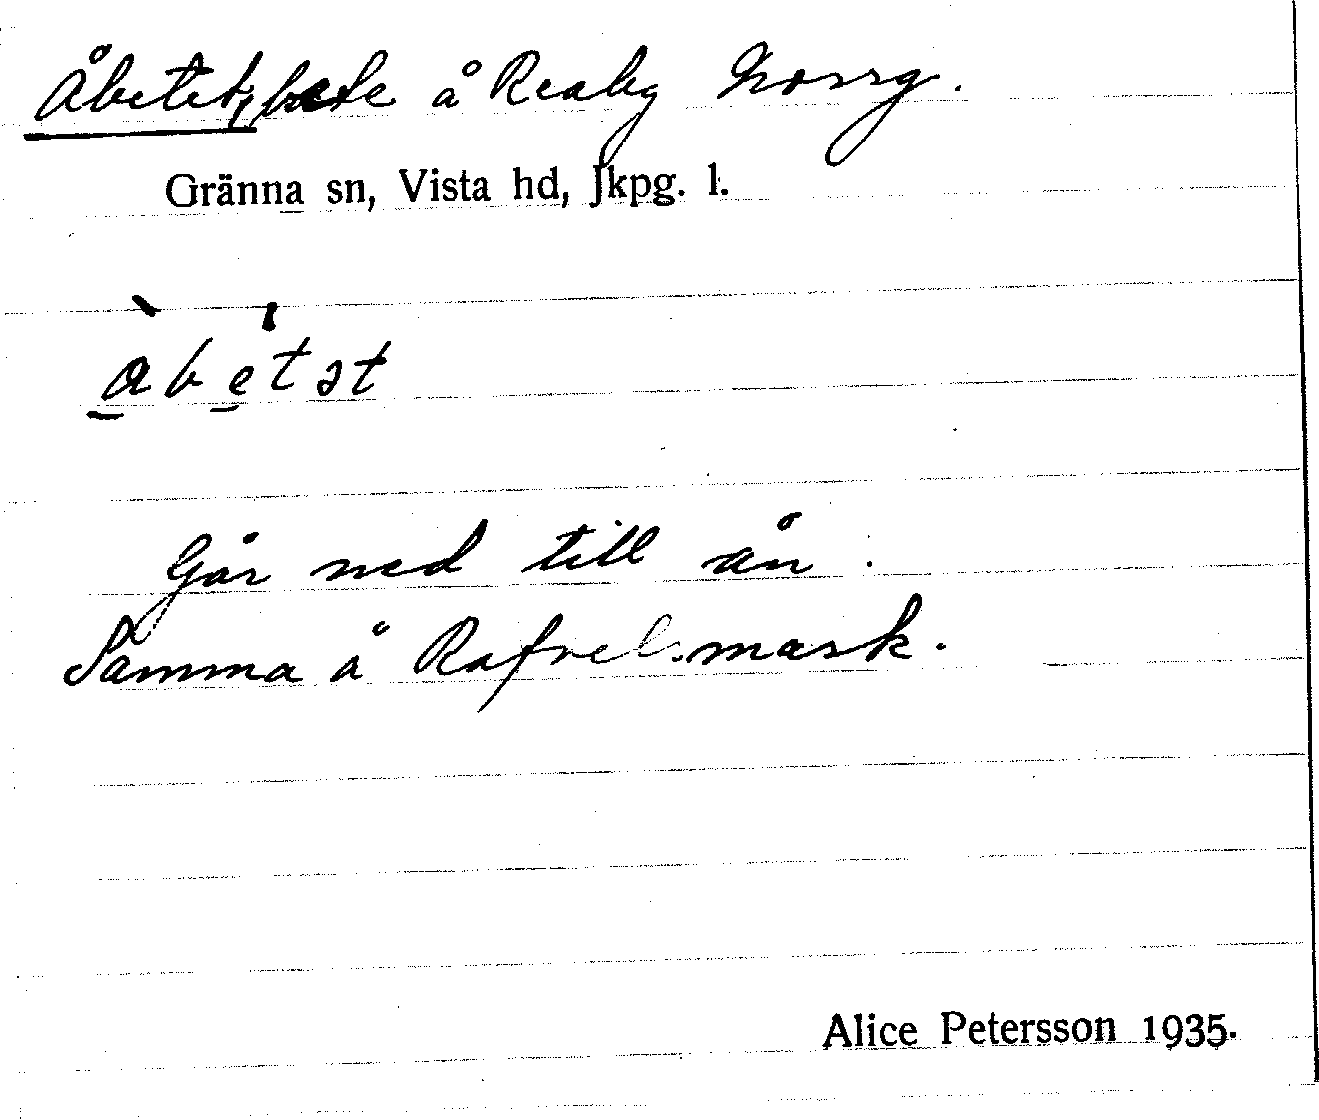 Åbetet, bete å Reaby Norrg.
Gränna sn, Vista hd, Jkpg. l.
åbetət
Går ned till ån.
Samma å Rafvelsmark.
Alice Petersson 1935.